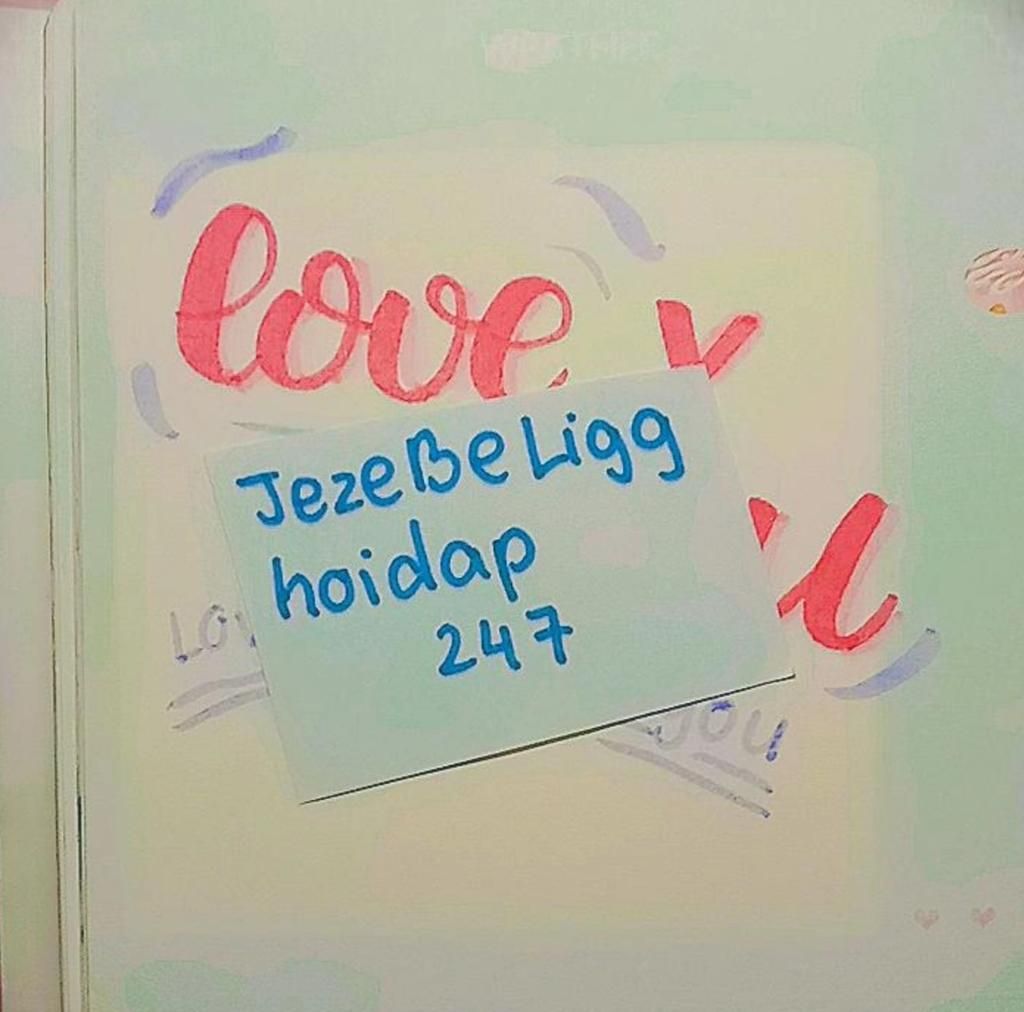 love y
JezeBeLigg
hoidap
247
u
LOV
YOU